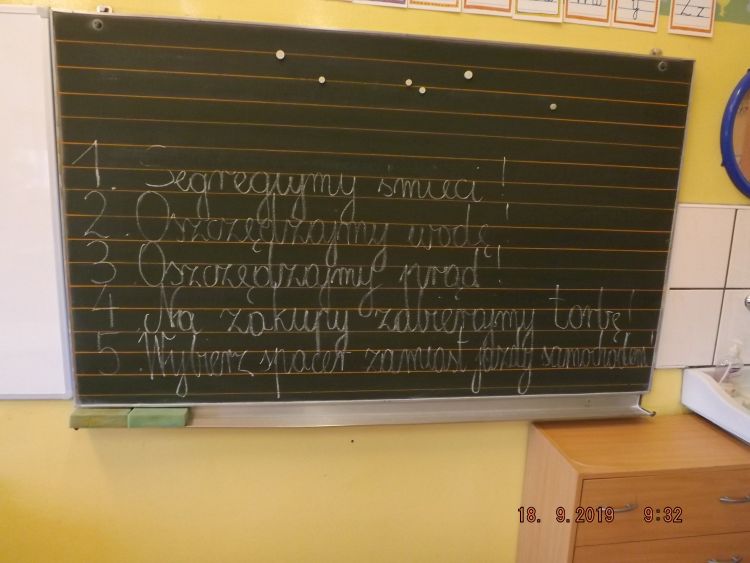 1. Segregujmy śmieci!
2. Oszczędzajmy wodę!
3. Oszczędzajmy prąd!
4. Na zakupy zabierajmy torbę!
5. Wybierz spacer zamiast jazdy samochodem!
18. 9.2019 9:32